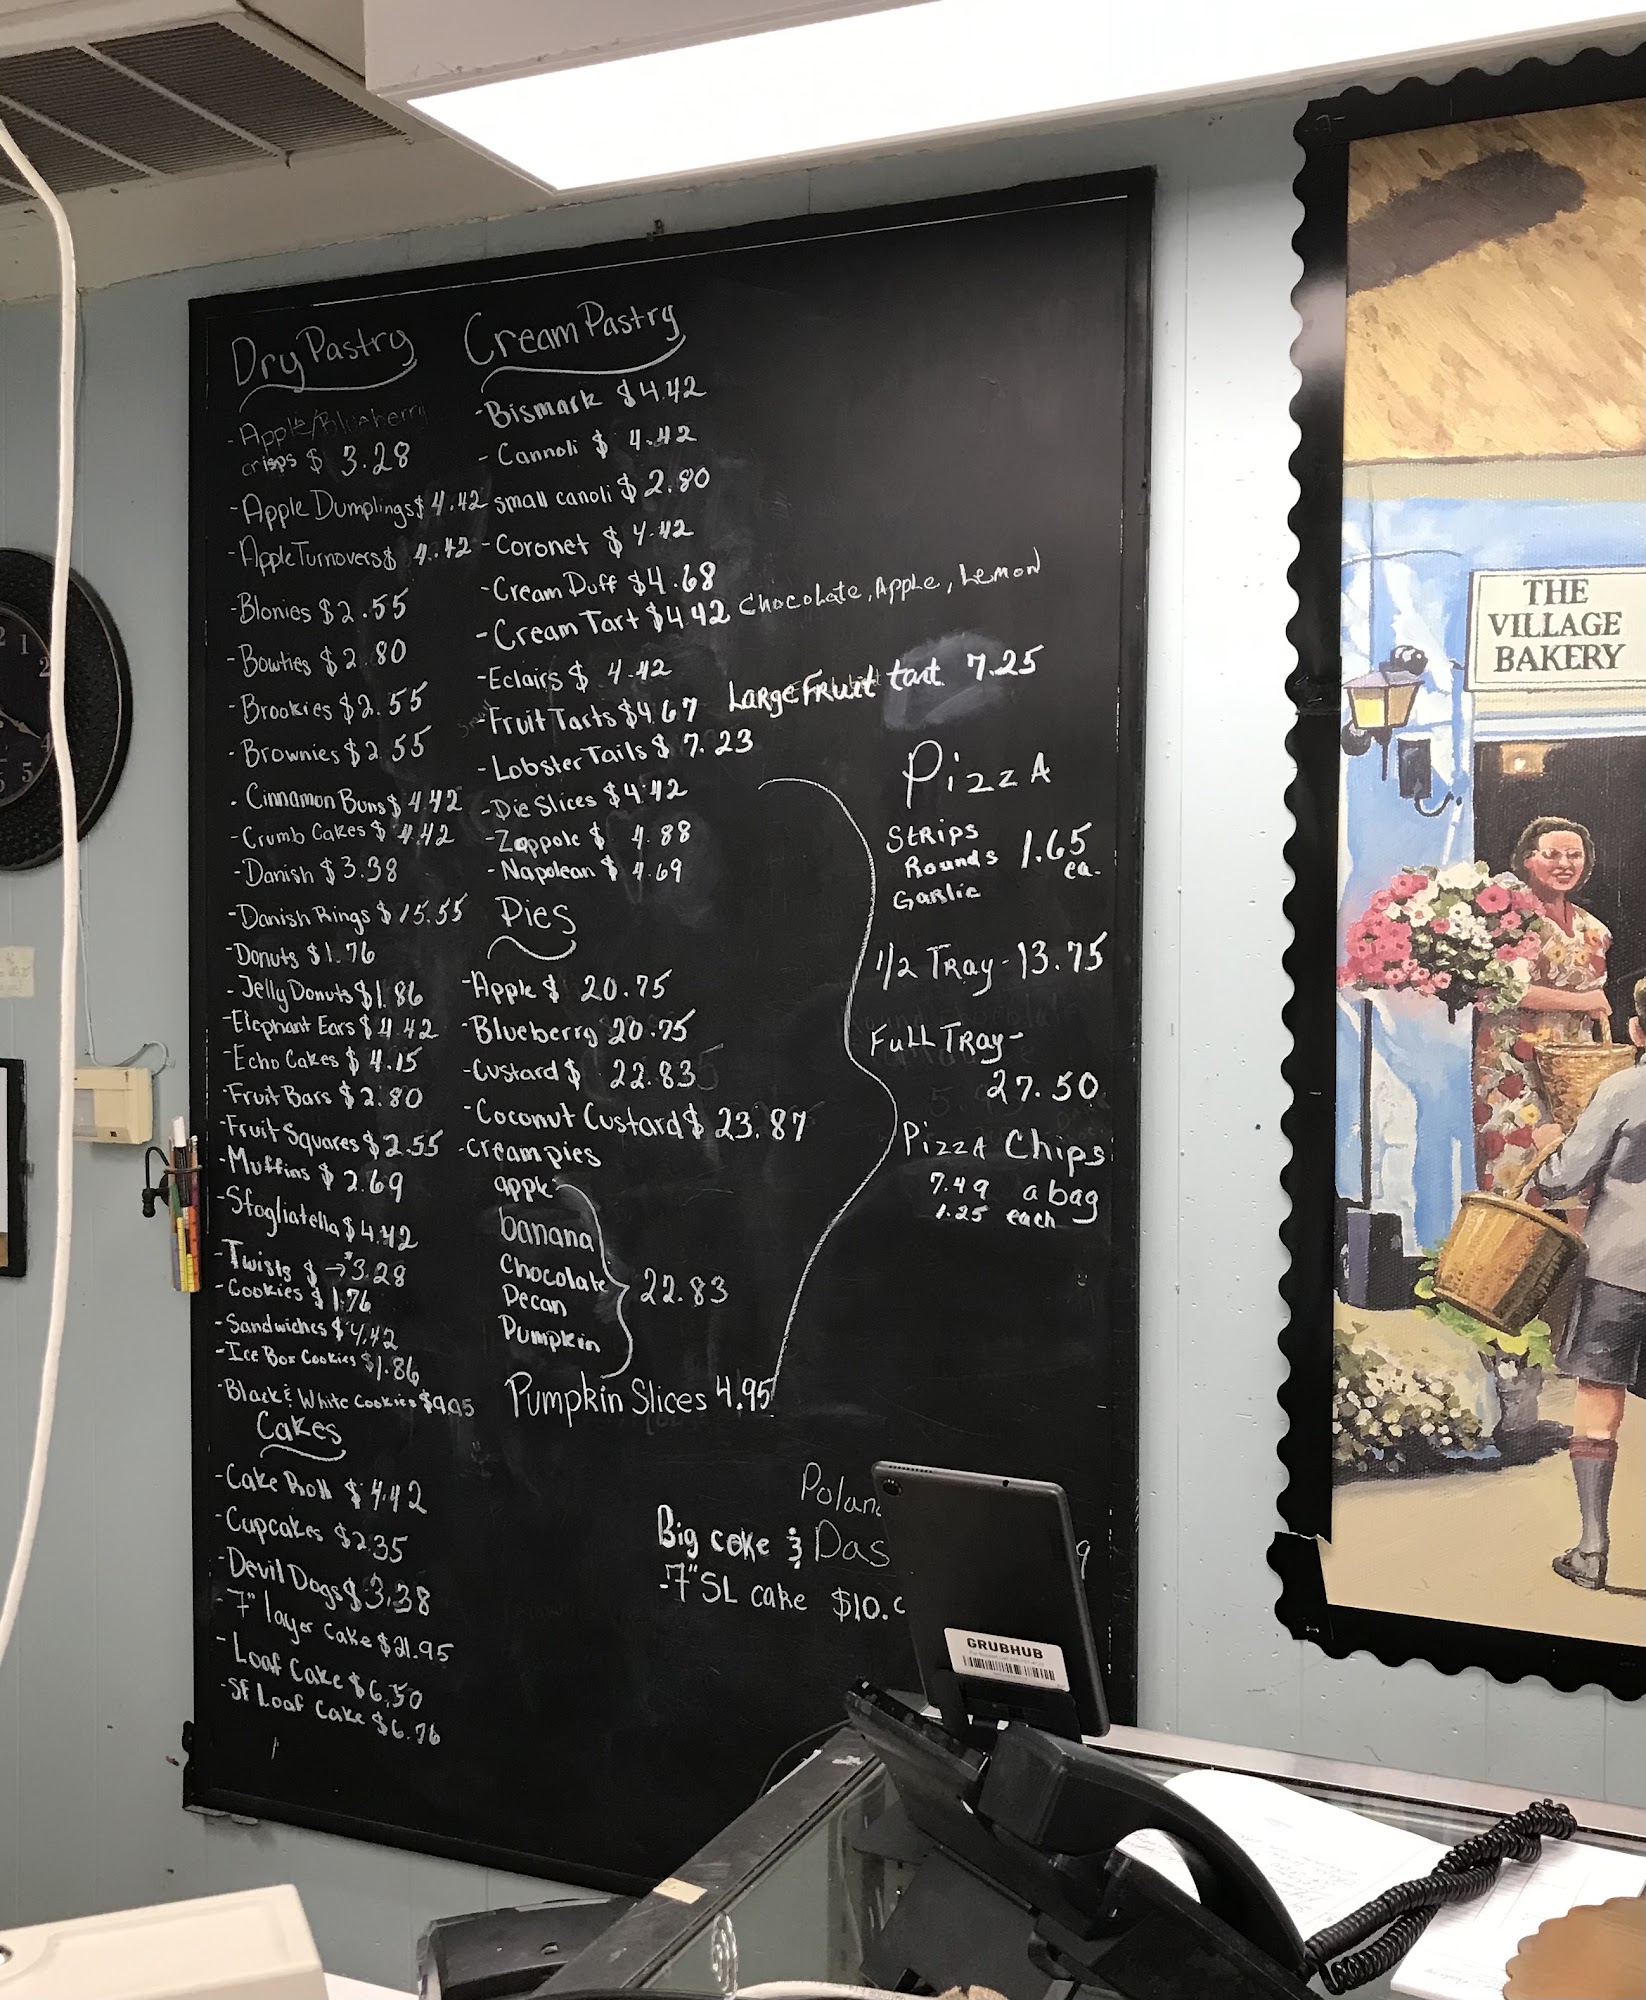 Dry Pastry
- Apple/Blueberry
crisps $ 3.28
- Apple Dumplings $4.42
- Apple Turnovers $ 4.42
- Blonies $2.55
- Bowties $2.80
- Brookies $2.55
- Brownies $2.55
- Cinnamon Buns $4.42
- Crumb Cakes $4.42
- Danish $3.38
- Danish Rings $15.55
- Donuts $1.76
- Jelly Donuts $1.86
- Elephant Ears $4.42
- Echo Cakes $4.15
- Fruit Bars $2.80
- Fruit Squares $2.55
- Muffins $2.69
- Sfogliatella $4.42
- Twists $ → 3.28
- Cookies $1.76
- Sandwiches $4.42
- Ice Box Cookies $1.86
- Black & White Cookies
Cakes
- Cake Roll $4.42
- Cupcakes $2.35
- Devil Dogs $3.38
- 7" layer cake $21.95
- Loaf Cake $6.50
- SF Loaf Cake $6.76
Cream Pastry
- Bismark $4.42
- Cannoli $ 4.42
small canoli $2.80
- Coronet $4.42
- Cream Puff $4.68
- Cream Tart $4.42 Chocolate, Apple, Lemon
- Eclairs $ 4.42
- Fruit Tarts $4.67 Large Fruit tart 7.25
- Lobster Tails $ 7.23
- Pie Slices $4.42
- Zappole $ 4.88
- Napolean $ 4.69
Pies
- Apple $ 20.75
- Blueberry 20.75
- Custard $ 22.83
- Coconut Custard $ 23.87
- cream pies
apple
banana
Chocolate 22.83
Pecan
Pumpkin
Pumpkin Slices 4.95
Pizza
Strips
Rounds 1.65 ea.
Garlic
1/2 Tray - 13.75
Full Tray -
27.50
Pizza Chips
7.49 a bag
1.25 each
Big coke &
- 7" SL cake $10.
GRUBHUB
THE
VILLAGE
BAKERY